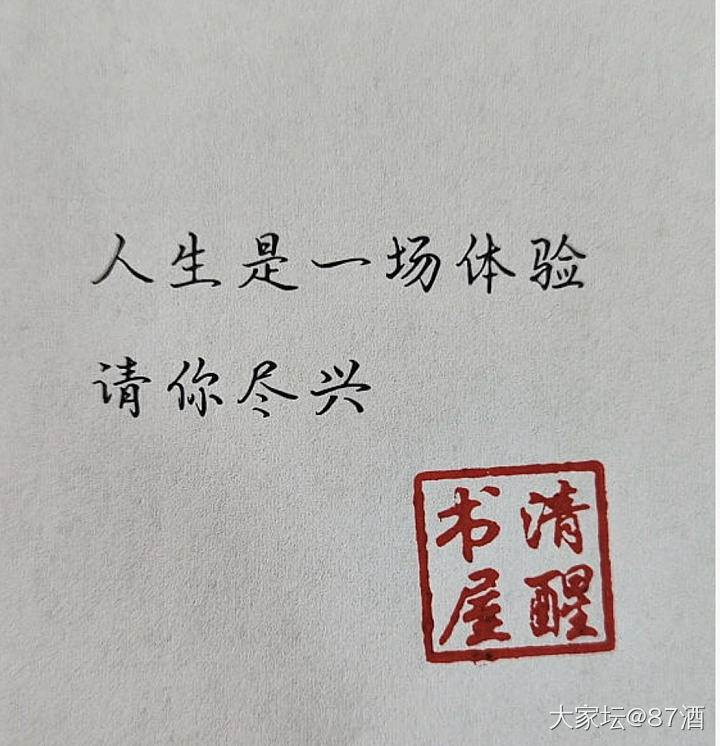 人生是一场体验
请你尽兴
清醒
书屋
大家坛@87酒